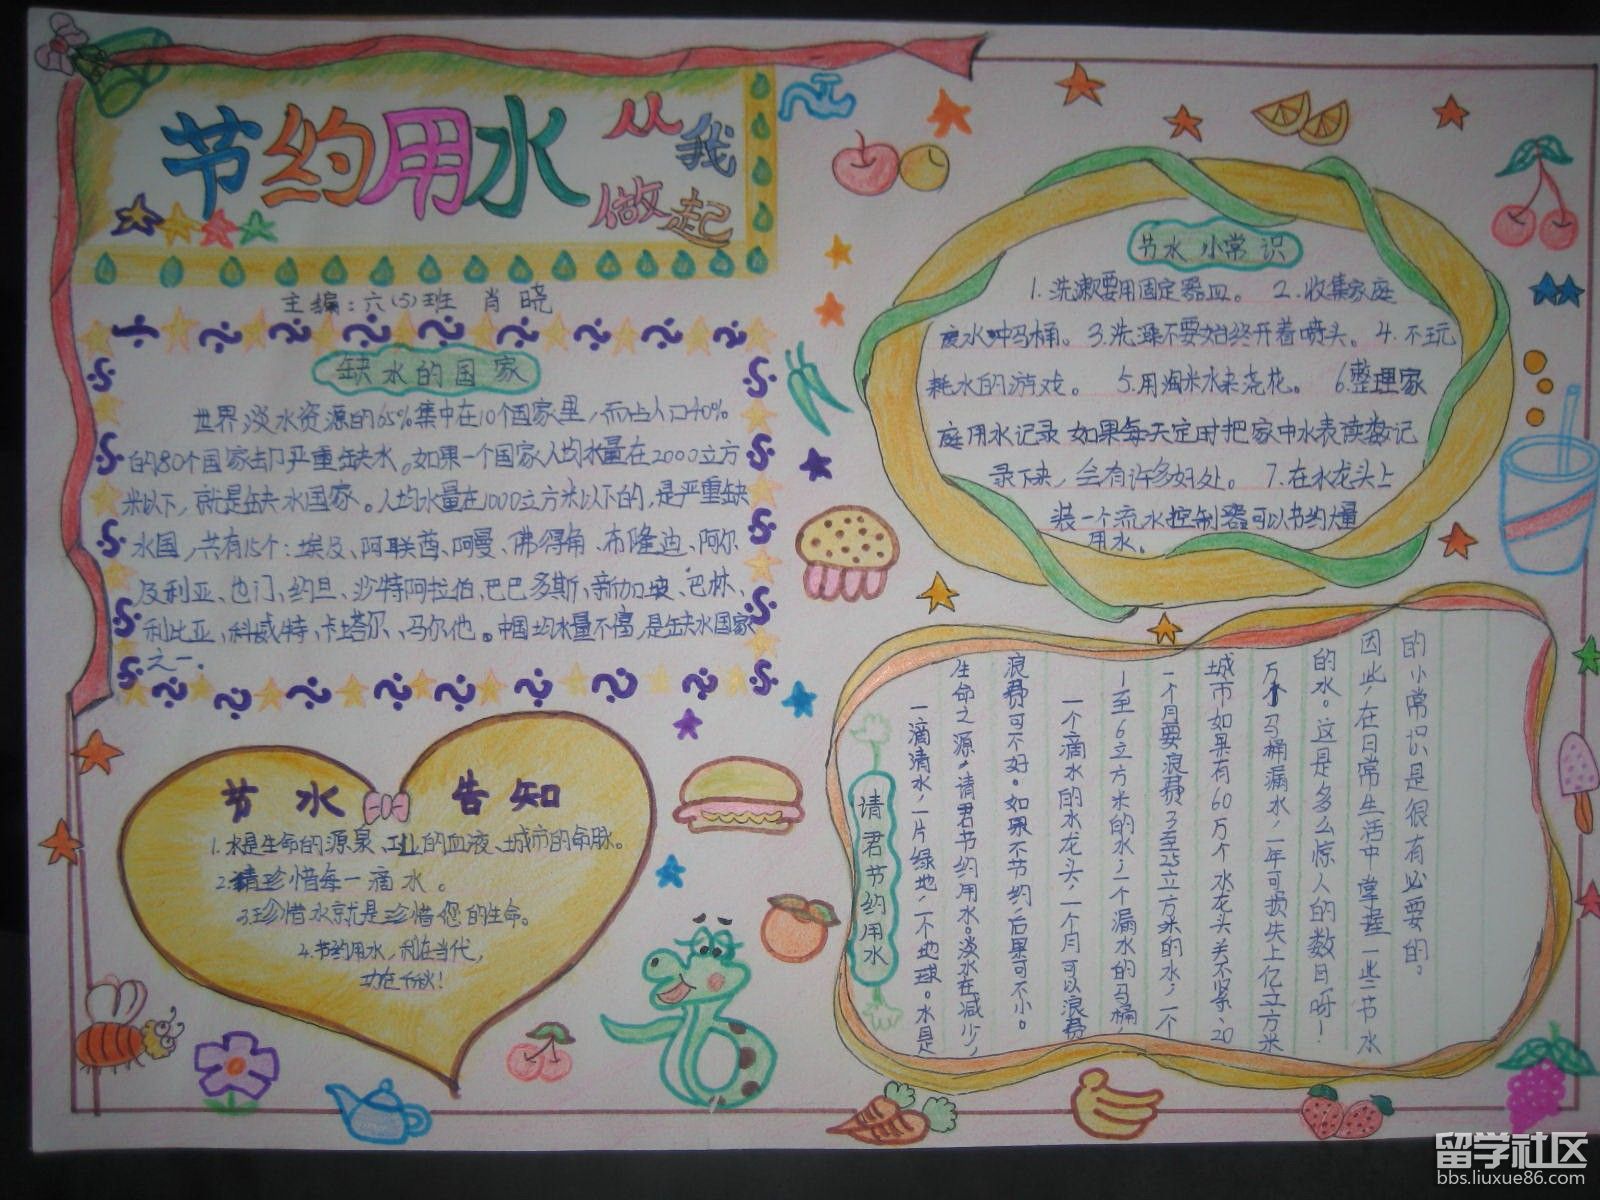 节约用水
从我
做起
主编：六(5)班 肖晓
缺水的国家
世界淡水资源的65%集中在10个国家里，而占人口40%
的80个国家却严重缺水。如果一个国家人均水量在2000立方
米以下，就是缺水国家。人均水量在1000立方米以下的，是严重缺
水国，共有15个：埃及、阿联酋、阿曼、佛得角、布隆迪、阿尔
及利亚、也门、约旦、沙特阿拉伯、巴巴多斯、新加坡、巴林、
利比亚、科威特、卡塔尔、马尔他。中国均水量不富，是缺水国家
之一.
节水小常识
1.洗漱要用固定器皿。 2.收集家庭
废水冲马桶。3.洗澡不要始终开着喷头。4.不玩
耗水的游戏。 5.用淘米水来浇花。 6.整理家
庭用水记录 如果每天定时把家中水表读数记
录下来，会有许多好处。 7.在水龙头上
装一个流水控制器可以节约大量
用水。
节水告知
1.水是生命的源泉、工业的血液、城市的命脉。
2.请珍惜每一滴水。
3.珍惜水就是珍惜您的生命。
4.节约用水，利在当代，
功在千秋！
请君节约用水
一滴清水，一片绿地，一个地球。水是
生命之源，请君节约用水。淡水在减少，
浪费可不好。如果不节约，后果可不小。
一个滴水的水龙头，一个月可以浪费
1至6立方米的水；一个漏水的马桶
一个月要浪费3至25立方米的水，一个
城市如果有60万个水龙头关不紧、20
万个马桶漏水，一年可损失上亿立方米
的水。这是多么惊人的数目呀！
因此，在日常生活中掌握一些节水
的小常识是很有必要的。
留学社区
bbs.liuxue86.com